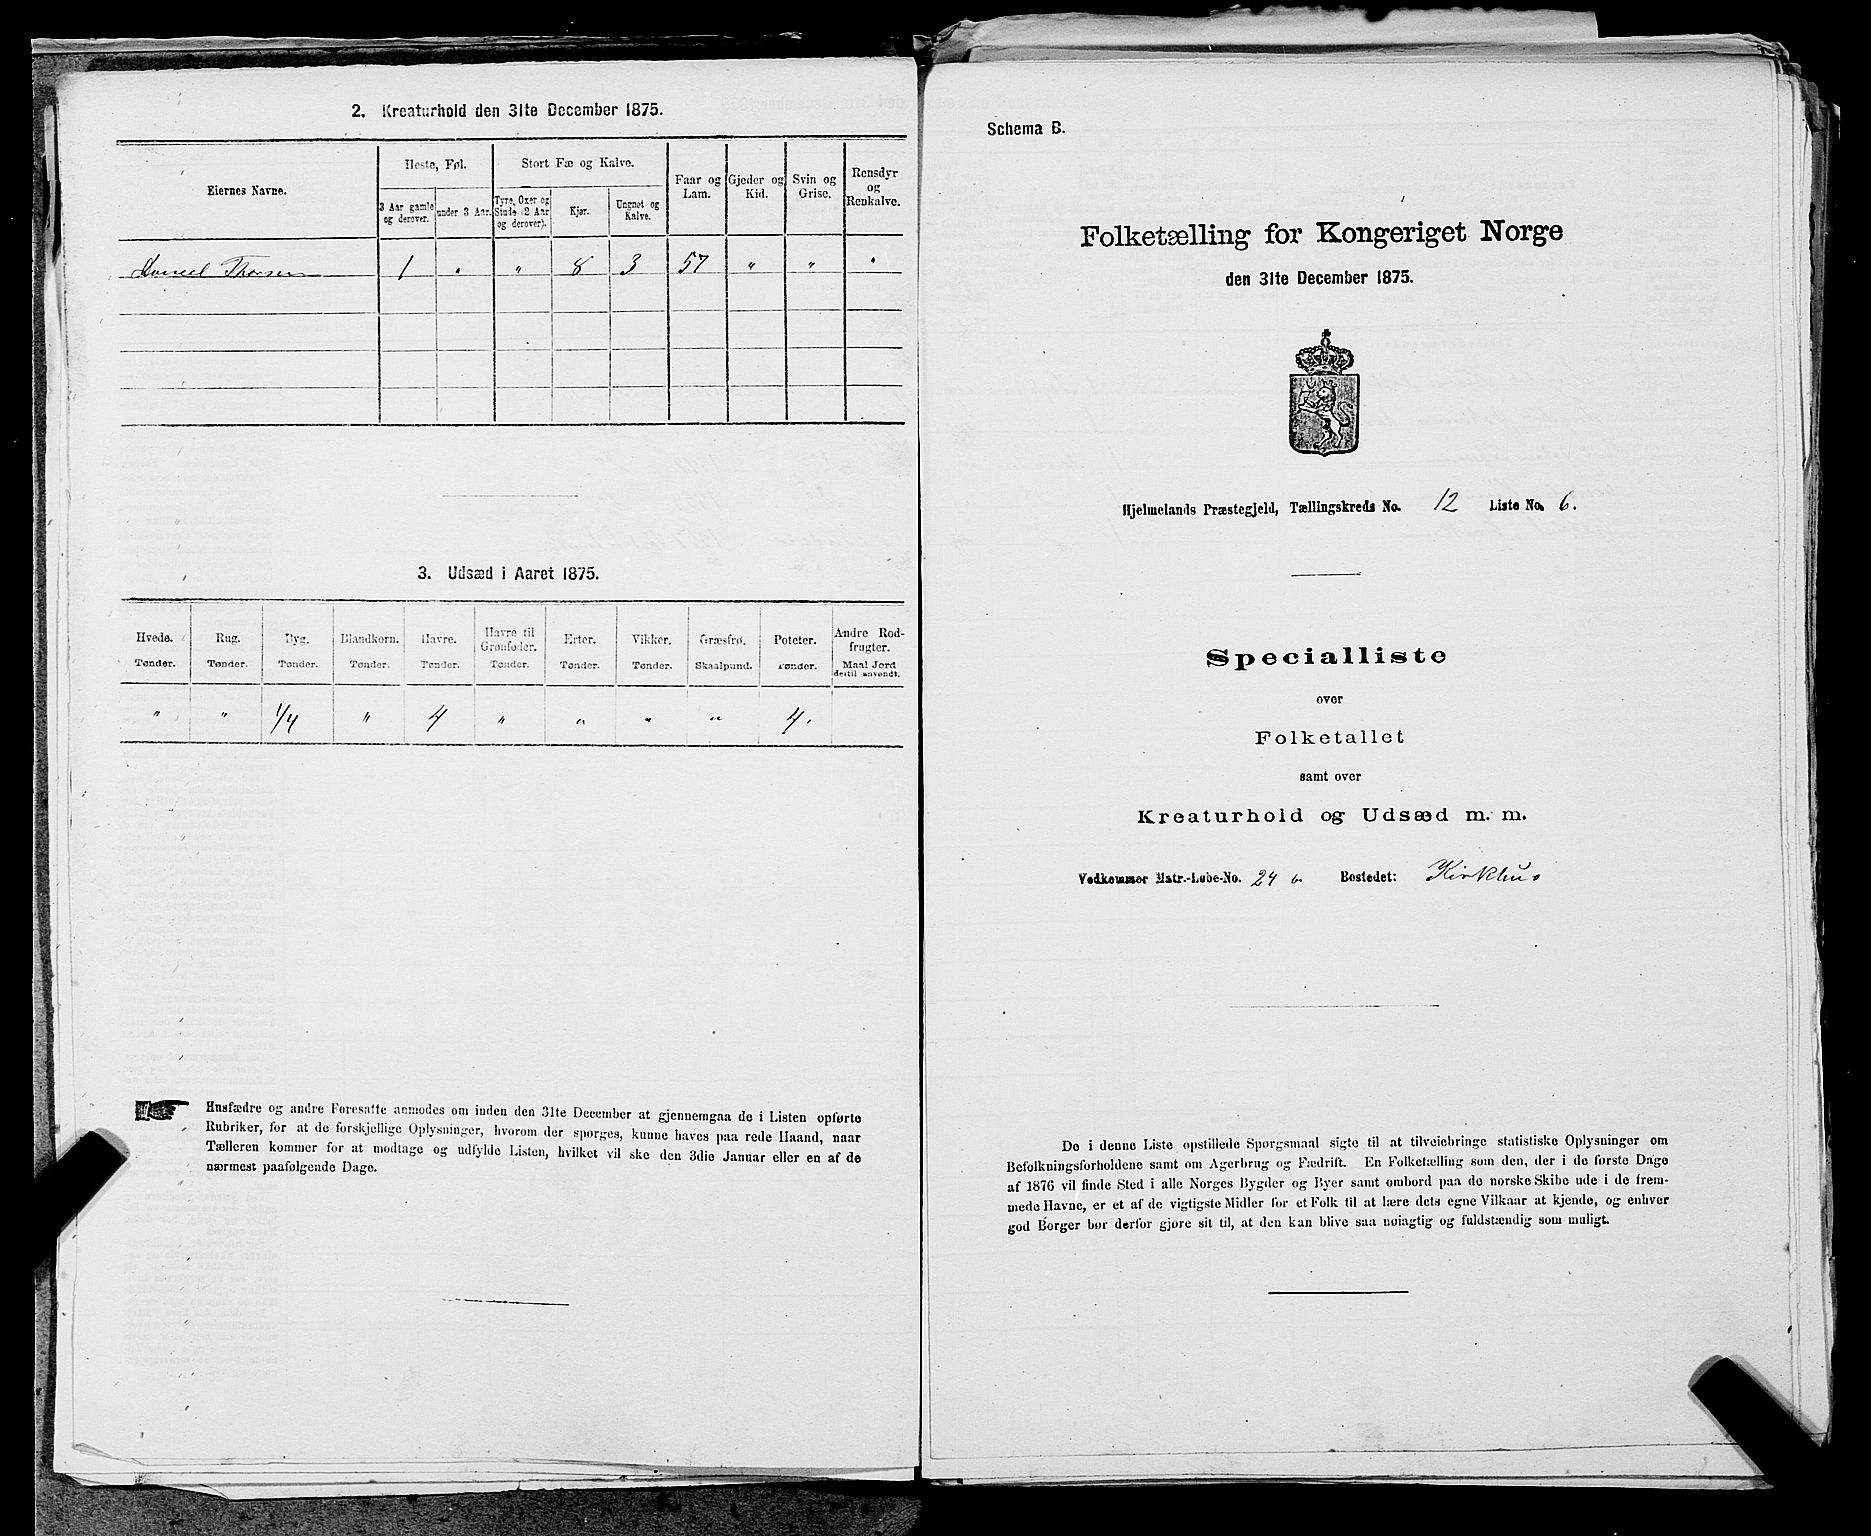 2. Kreaturhold den 31te December 1875.
Eiernes Navne.
Heste, Føl.
Stort Fæ og Kalve.
Faar og Lam.
Gjeder og Kid.
Svin og Grise.
Rensdyr og Renkalve.
3 Aar gamle og derover.
under 3 Aar.
Tyre, Oxer og Stude (2 Aar og derover).
Kjør.
Ungnøt og Kalve.
Thorsen 1 " " 8 3 57 " " "
3. Udsæd i Aaret 1875.
Hvede. Rug. Byg. Blandkorn. Havre. Havre til Grønfoder. Erter. Vikker. Græsfrø. Poteter. Andre Rodfrugter.
Tønder. Tønder. Tønder. Tønder. Tønder. Tønder. Tønder. Tønder. Skaalpund. Tønder. Maal Jord dertil anvendt.
" " 1/4 " 4 " " " " 4.
Husfædre og andre Foresatte anmodes om inden den 31te December at gjennemgaa de i Listen opførte
Rubriker, for at de forskjellige Oplysninger, hvorom der spørges, kunne haves paa rede Haand, naar
Tælleren kommer for at modtage og udfylde Listen, hvilket vil ske den 3die Januar eller en af de
nærmest paafølgende Dage.
Schema B.
Folketælling for Kongeriget Norge
den 31te December 1875.
Hjelmelands Præstegjeld, Tællingskreds No. 12 Liste No. 6.
Specialliste
over
Folketallet
samt over
Kreaturhold og Udsæd m. m.
Vedkommer Matr.-Løbe-No. 24 Bostedet: Kirkhus
De i denne Liste opstillede Spørgsmaal sigte til at tilveiebringe statistiske Oplysninger om
Befolkningsforholdene samt om Agerbrug og Fædrift. En Folketælling som den, der i de første Dage
af 1876 vil finde Sted i alle Norges Bygder og Byer samt ombord paa de norske Skibe ude i de frem-
mede Havne, er et af de vigtigste Midler for et Folk til at lære dets egne Vilkaar at kjende, og enhver
god Borger bør derfor gjøre sit til, at den kan blive saa nøiagtig og fuldstændig som muligt.